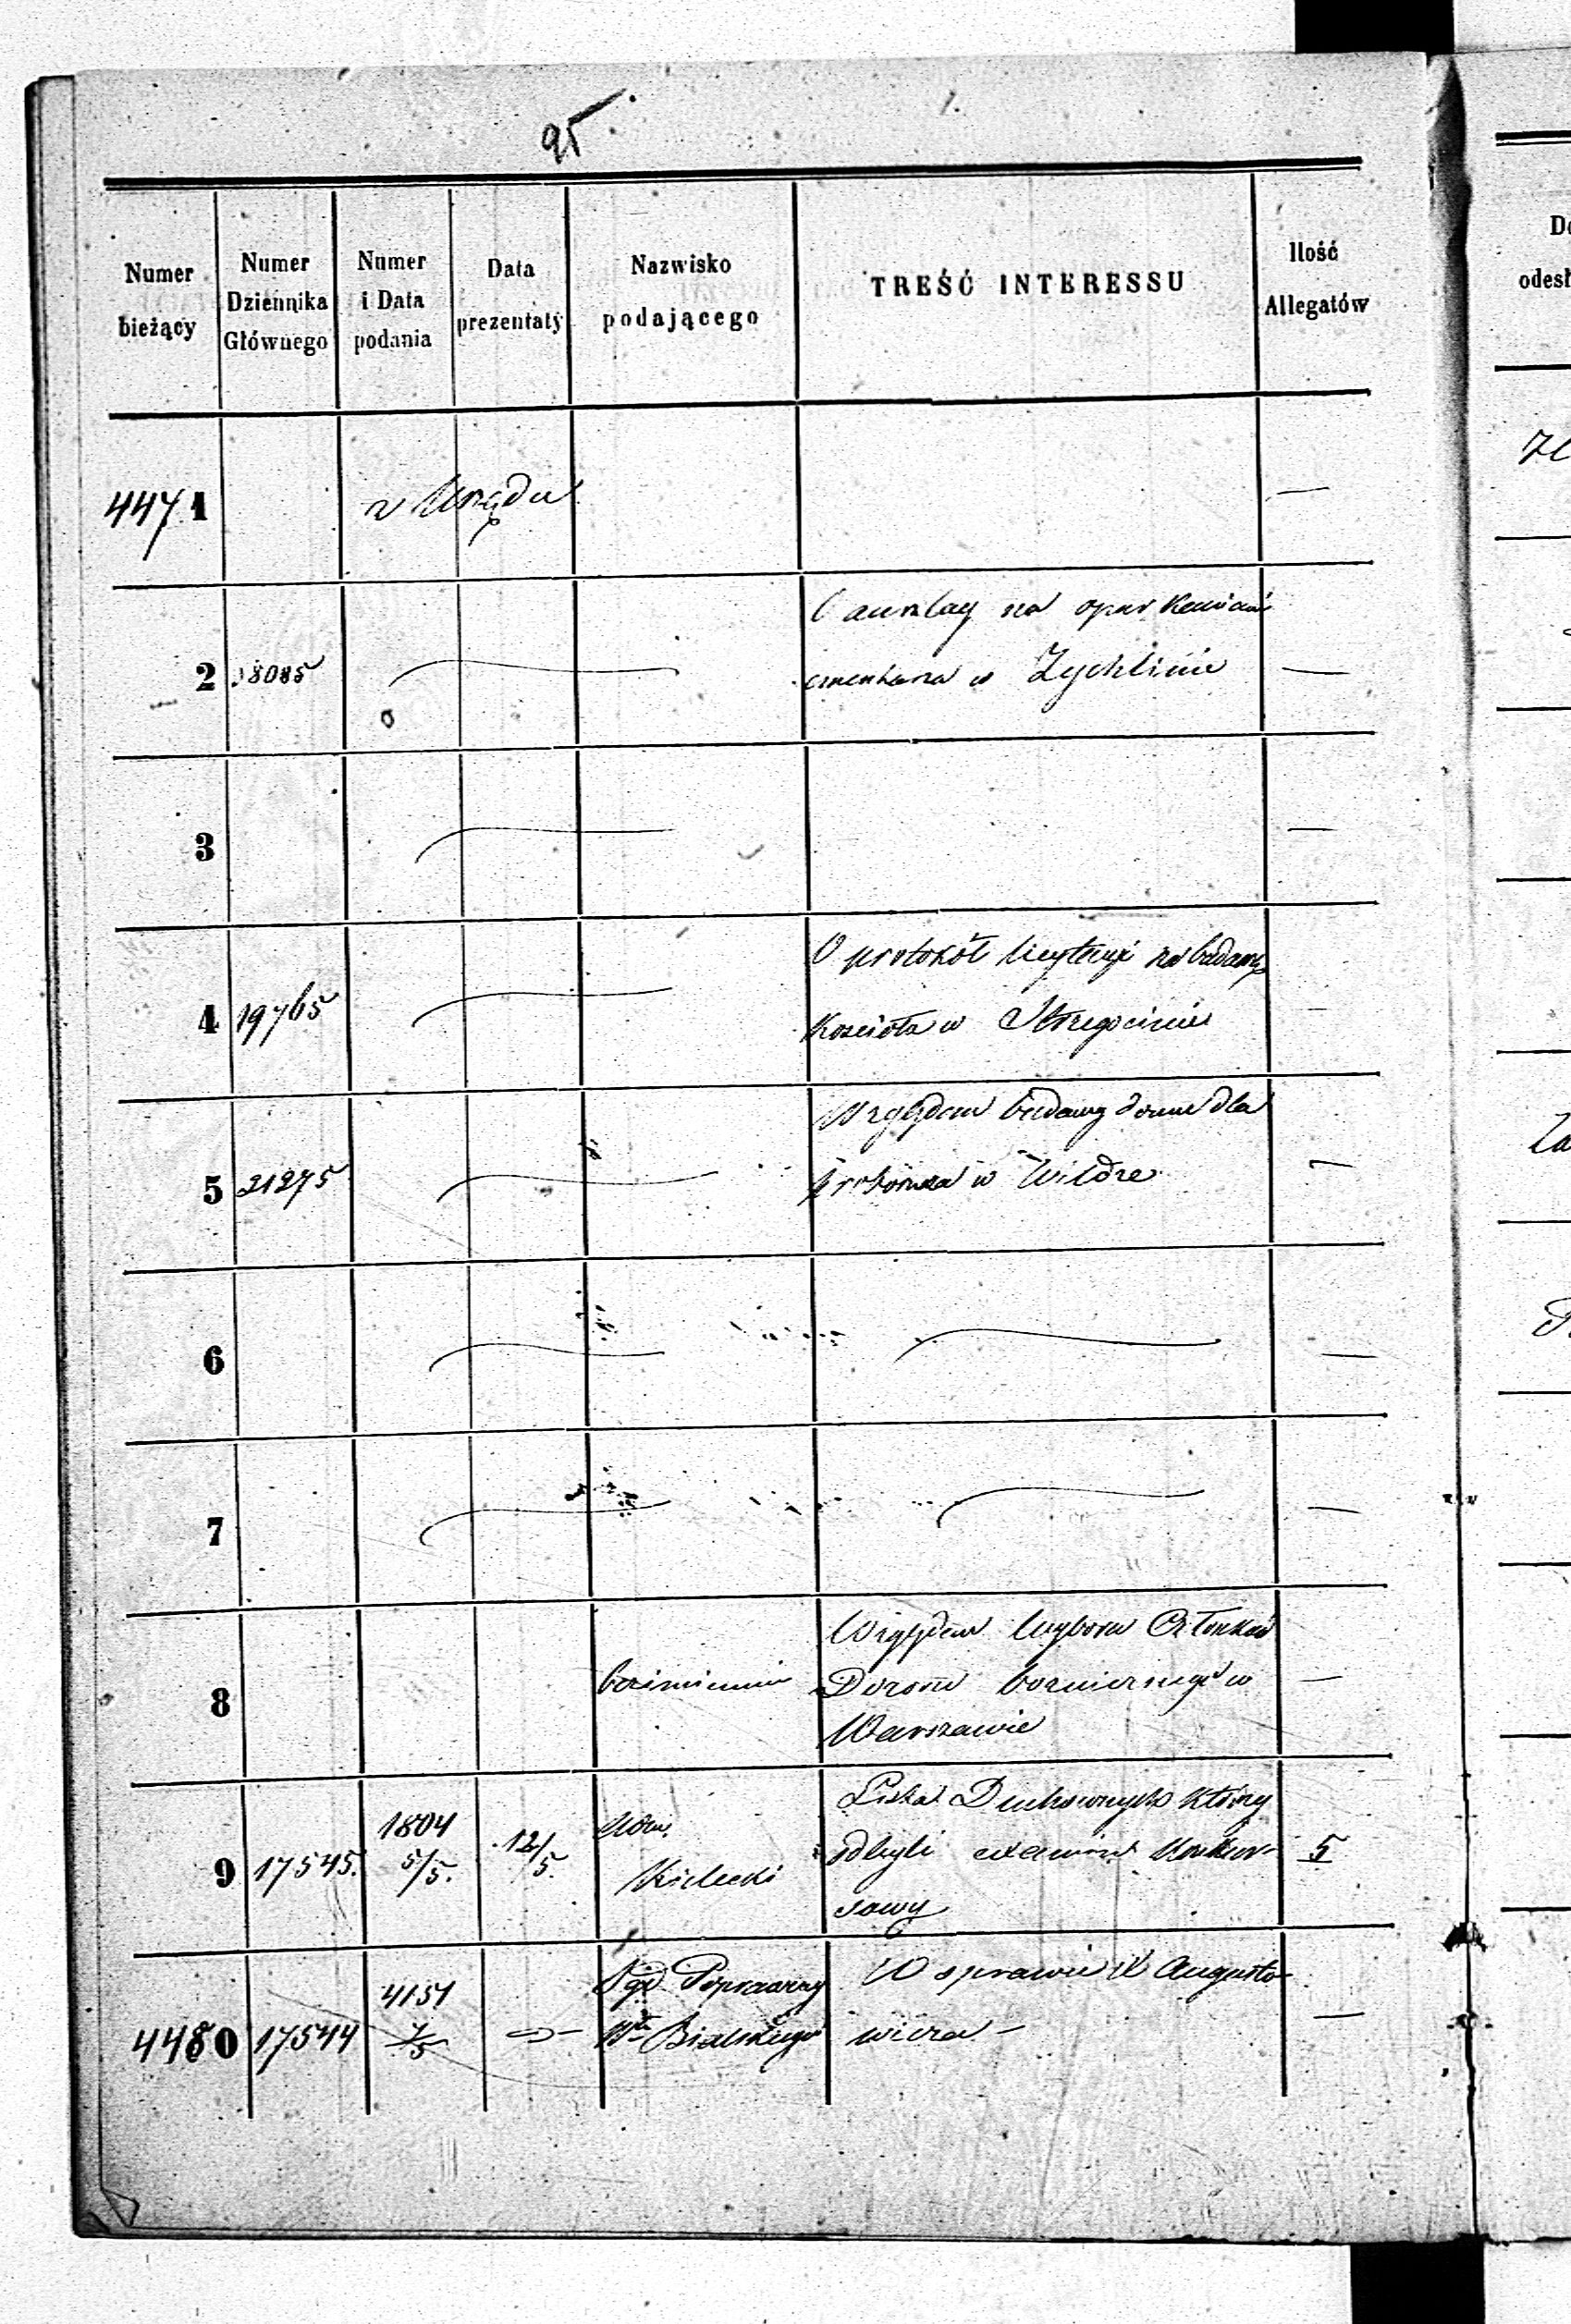 95.
Numer bieżący
Numer Dziennika Głównego
Numer i Data podania
Data prezentaty
Nazwisko podającego
TREŚĆ INTERESSU
Ilość Allegatów
De
odesł
4471 z Urzędu —
2 18085 O anszlag na oparkanienie
cmentarza w Żychlinie —
3 —
4 19765 O protokół licytacyi na budowę
Kościoła w Strzegocinie —
5 21275 Względem budowy domu dla
proboszcza w Wildze —
6 —
7 —
8 bezimiennie Względem wyboru Członków
Dozoru bożniczego w
Warszawie —
9 17545. 1804 5/5. 12/5. Adm. Kielecki Lista Duchownych którzy
odbyli examin Konkur-
sowy 5
4480 17544 4151 7/5 Sąd Poprawczy
Wł Bialskiego W sprawie X Augusto-
wicza — —